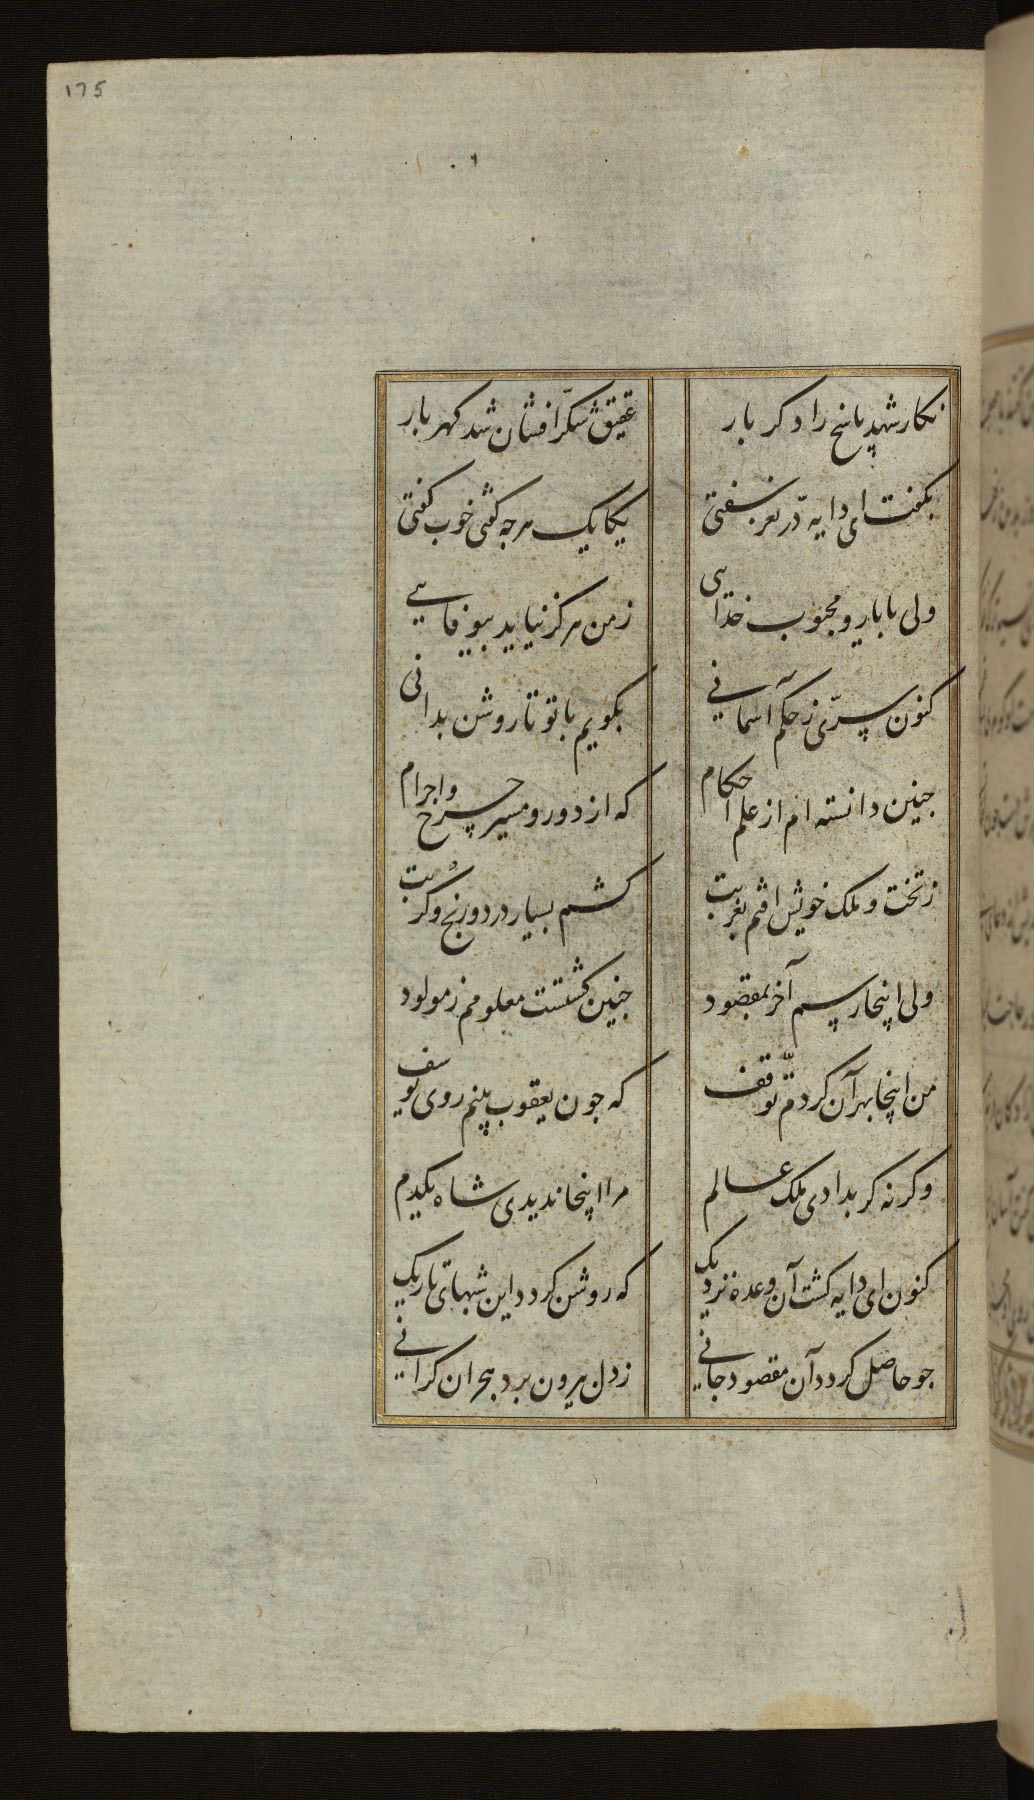 ۱۷۵
نکارشهد پاسخ را دکر بار
عقیق شکّرافشان شد کهربار
بکفت ای دایه درّ نغز سفتی
یکایک هرجه کفتی خوب کفتی
ولی با یار و محبوب خدایی
ز من هرکز نیاید بیوفایی
کنون سرّی ز حکم آسمانی
بکویم با تو تا روشن بدانی
جنین دانسته ام از علم احکام
که از دور و مسیر چرخ واجرام
ز تخت و ملک خویش افتم بغربت
کشم بسیار درد و رنج و کربت
ولی اینجا رسم آخر بمقصود
جنین کشتست معلومم ز مولود
من اینجا بهر آن کردم توقّف
که جون یعقوب بینم روی یوسف
وکرنه کر بدادی ملک عالم
مرا اینجا ندیدی شاه یکدم
کنون ای دایه کشت آن وعده نزدیک
که روشن کردد این شبهای تاریک
جو حاصل کردد آن مقصود جانی
ز دل بیرون برد هجران کرانی